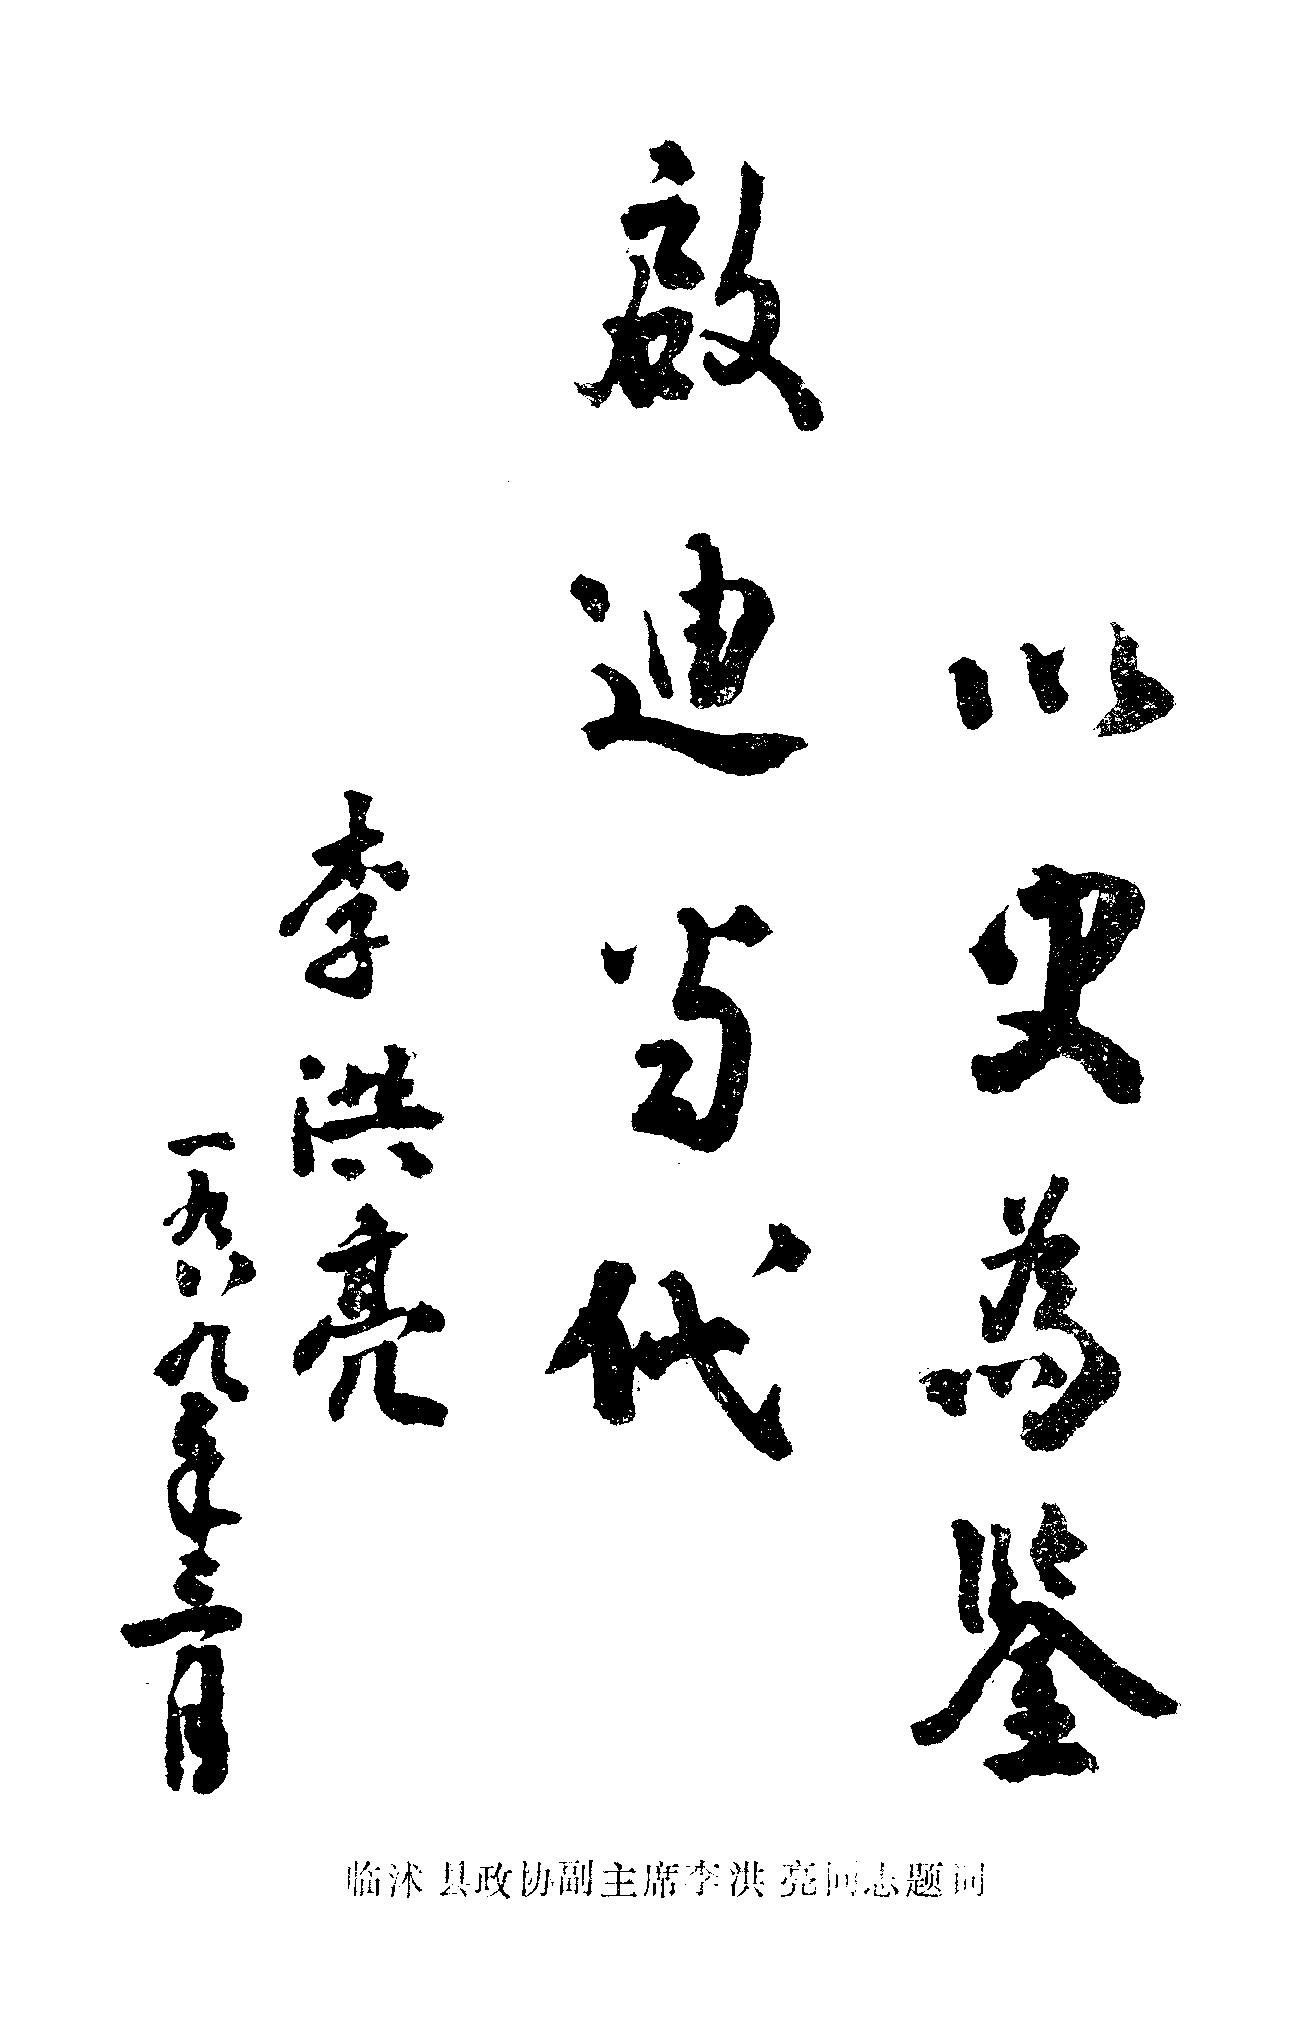 以史為鉴
啟迪当代
李洪亮
一九八九年三月
临沭县政协副主席李洪亮同志题词